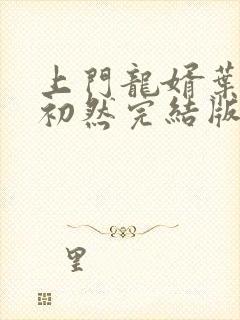 上門龍婿葉
初然完結版
里